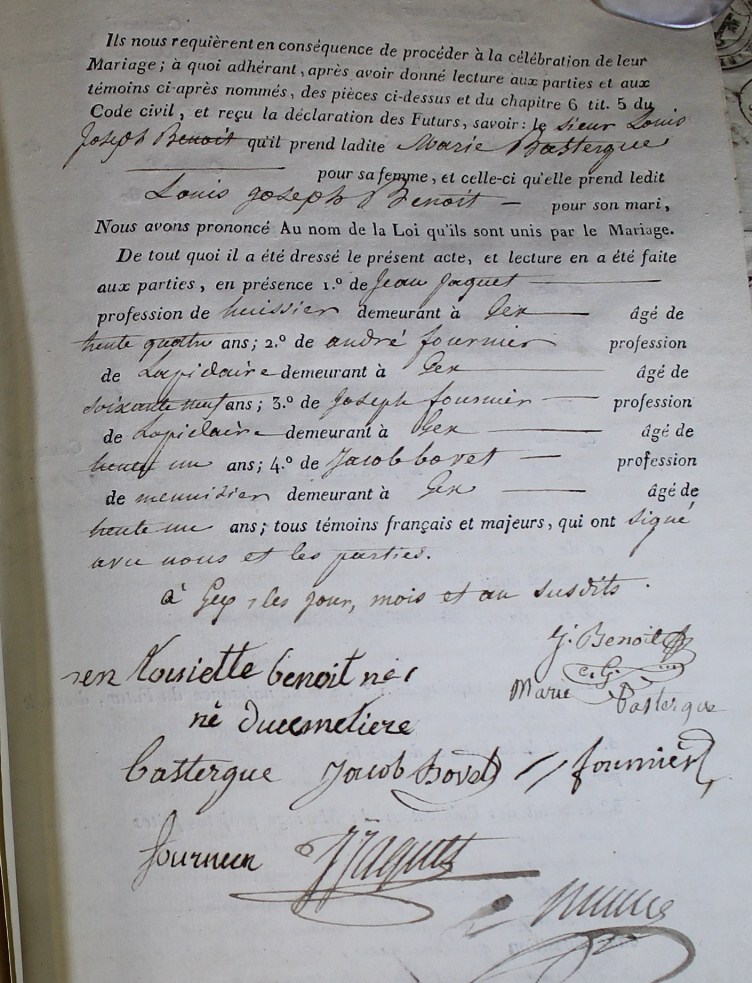 Ils nous requièrent en conséquence de procéder à la célébration de leur
Mariage; à quoi adhérant, après avoir donné lecture aux parties et aux
témoins ci-après nommés, des pièces ci-dessus et du chapitre 6 tit. 5 du
Code civil, et reçu la déclaration des Futurs, savoir: le sieur Louis
Joseph Benoit qu'il prend ladite Marie Bastergue
pour sa femme, et celle-ci qu'elle prend ledit
Louis joseph Benoit — pour son mari,
Nous avons prononcé Au nom de la Loi qu'ils sont unis par le Mariage.
De tout quoi il a été dressé le présent acte, et lecture en a été faite
aux parties, en présence 1.º de Jean Jaquet
profession de huissier demeurant à Gex — âgé de
trente quatre ans; 2.º de andré fournier profession
de Lapidaire demeurant à Gex — âgé de
soixante neuf ans; 3.º de Joseph fournier — profession
de Lapidaire demeurant à Gex — âgé de
trente un ans; 4.º de Jacob bovet — profession
de menuisier demeurant à Gex — âgé de
trente un ans; tous témoins français et majeurs, qui ont signé
avec nous et les parties.
à Gex, les jour, mois et an susdits.
J. Benoit
Louisette benoit né
Marie Bastergue
né ducimetiere
bastergue Jacob Bovet fournier
fournier J Jaquet